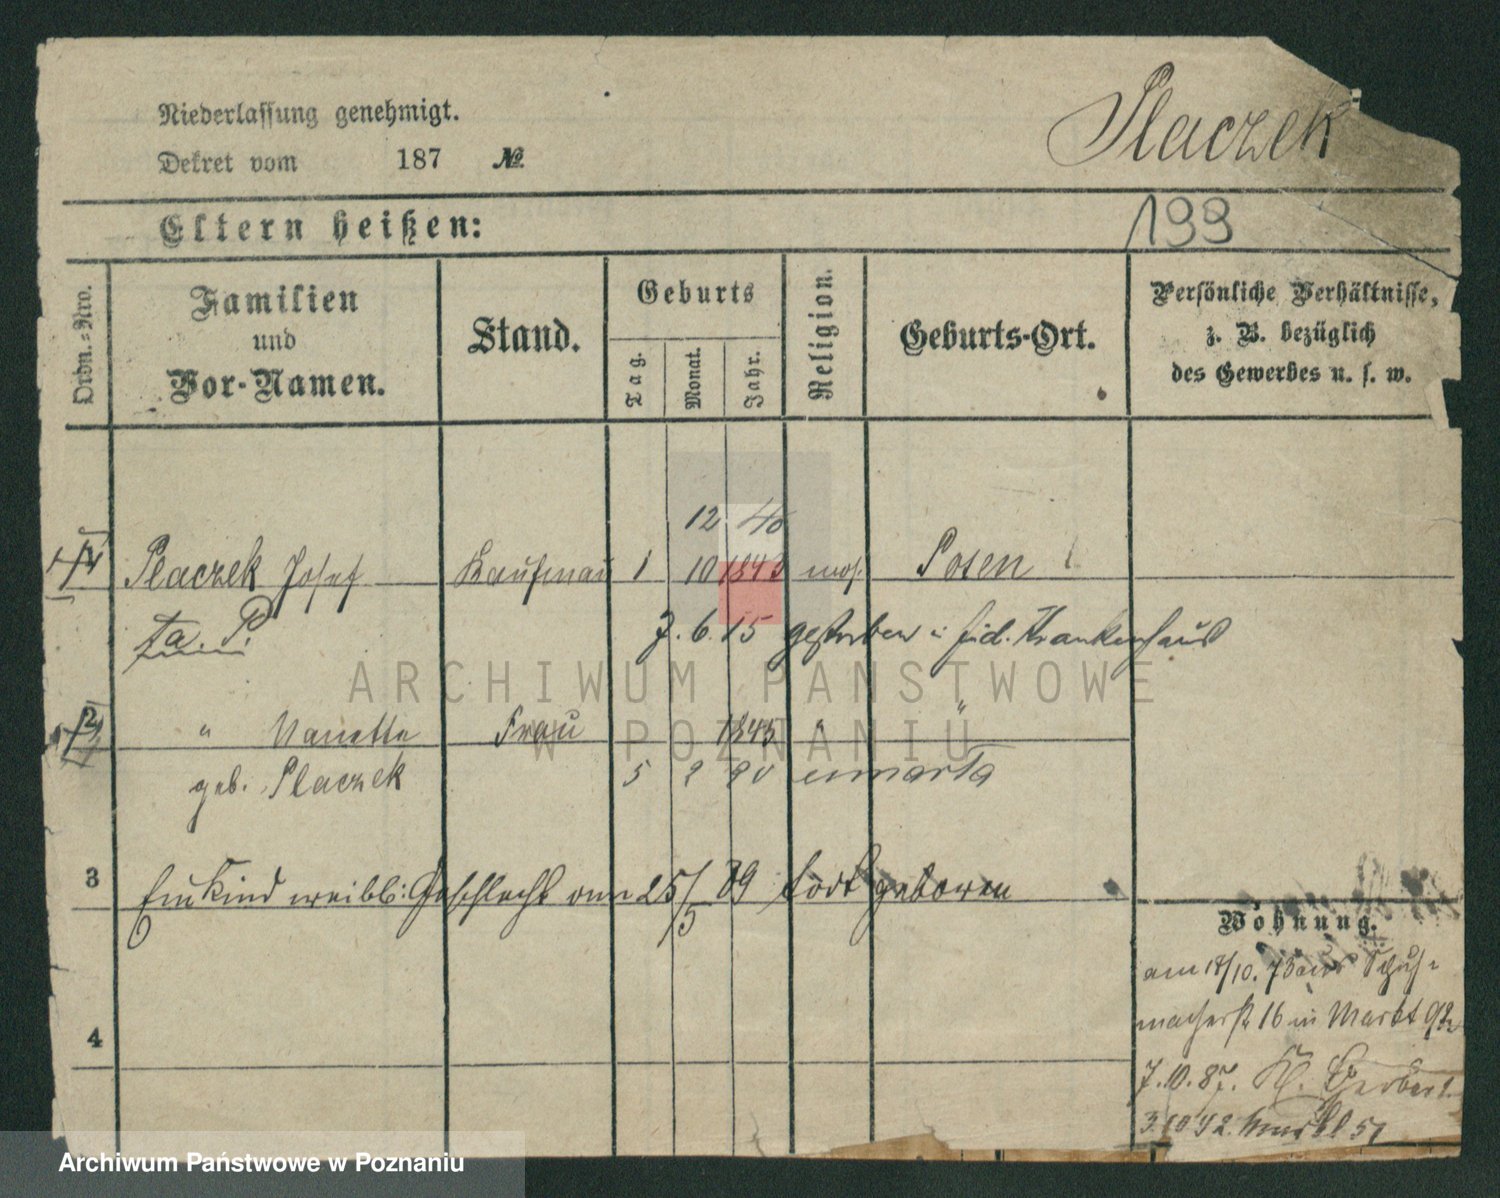 Niederlassung genehmigt.
Dekret vom 187 №
Placzek
Eltern heißen:
199
Ordn.=Nro.
Familien
und
Vor-Namen.
Stand.
Geburts
Tag.
Monat.
Jahr.
Religion.
Geburts-Ort.
Persönliche Verhältnisse,
z. B. bezüglich
des Gewerbes u. s. w.
12 40
Placzek Josef Kaufmau 1 10 1843 mos. Posen
fa. P. 7. 6. 15 gestorben i jüd. Krankenhaus
2 " Nanette Frau 1845 " "
geb. Placzek 5 9 90 umarła
3 Ein Kind weibl: Geschlecht am 25/5 89 todt geboren
Wohnung.
am 18/10. 73 aus Schuh-
macherstr 16 in Markt 92
4
7.10.87. Gerber
3.10 92 Markt 51
ARCHIWUM PAŃSTWOWE
W POZNANIU
Archiwum Państwowe w Poznaniu